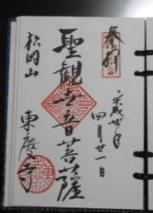 奉拝
平成廿
四月廿一日
聖観世音菩薩
松岡山
東慶寺